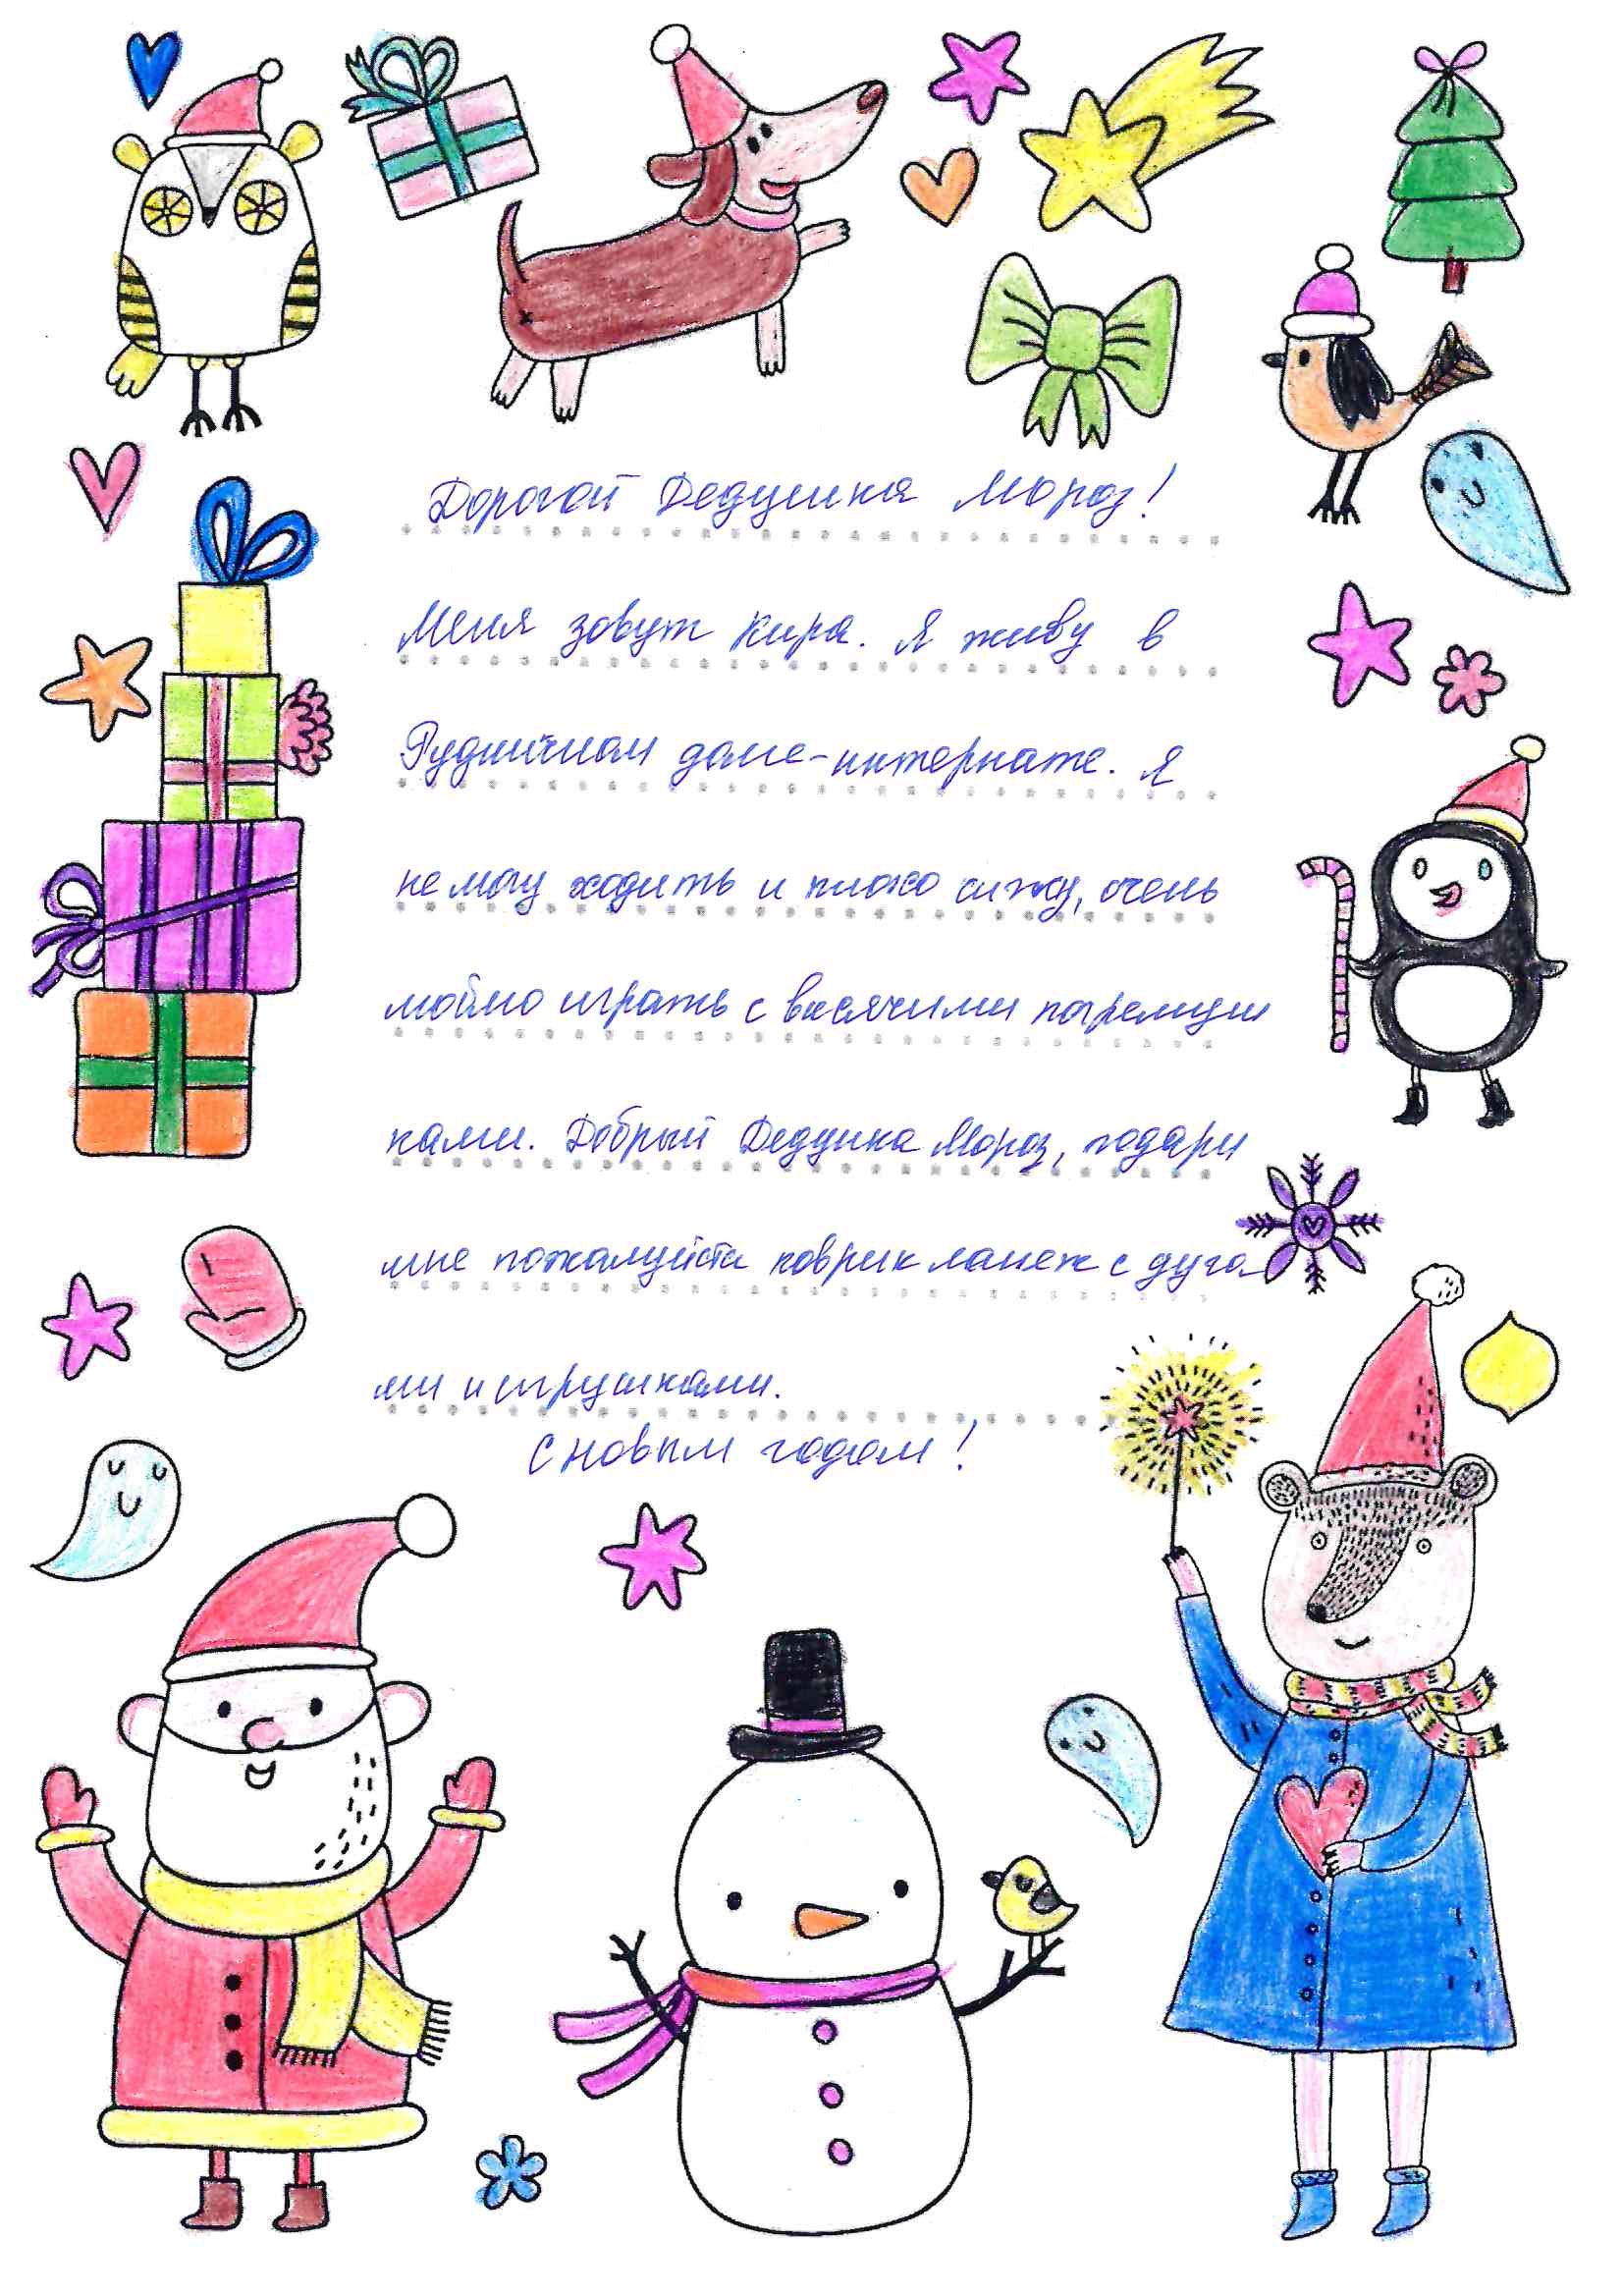 Дорогой Дедушка Мороз!
Меня зовут Кира. Я живу в
Рудничном доме-интернате. Я
не могу ходить и плохо сижу, очень
люблю играть с висячими погремуш
ками. Добрый Дедушка Мороз, подари
мне пожалуйста коврик манеж с дуга
ми и игрушками.
С новым годом!